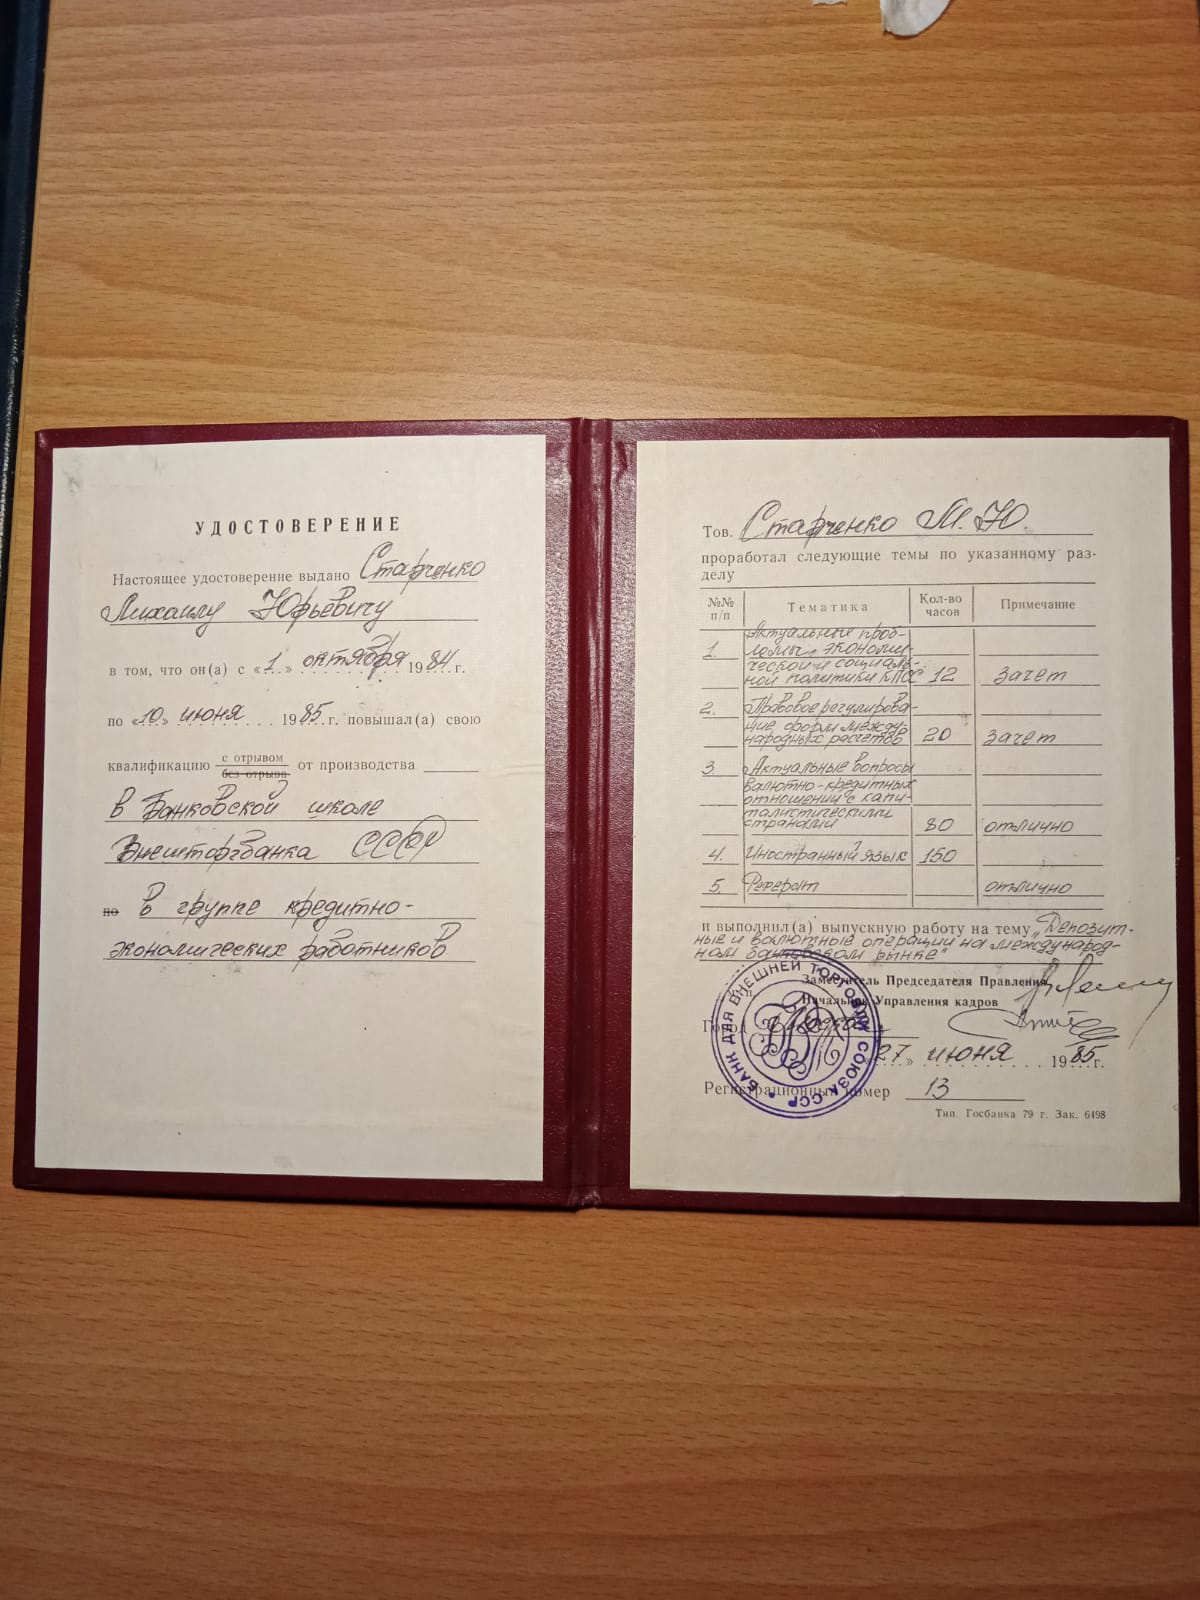 УДОСТОВЕРЕНИЕ
Настоящее удостоверение выдано Старченко
Михаилу Юрьевичу
в том, что он(а) с «1.» октября 1984 г.
по «10» июня 1985 г. повышал(а) свою
квалификацию с отрывом от производства
без отрыва
в Банковской школе
Внешторгбанка СССР
по в группе кредитно-
экономических работников
Тов. Старченко М. Ю.
проработал следующие темы по указанному раз-
делу
№№ п/п Тематика Кол-во часов Примечание
1. Актуальные проб-
лемы экономи-
ческой и социаль-
ной политики КПСС 12 зачет
2. Правовое регулирова-
ние форм между-
народных расчетов 20 зачет
3. Актуальные вопросы
валютно-кредитных
отношений с капи-
талистическими
странами 80 отлично
4. Иностранный язык 150
5. Реферат отлично
и выполнил(а) выпускную работу на тему „Депозит-
ные и валютные операции на международ-
ном банковском рынке“
Заместитель Председателя Правления
Начальник Управления кадров
Город Москва
«27» июня 1985 г.
Регистрационный номер 13
БАНК ДЛЯ ВНЕШНЕЙ ТОРГОВЛИ СОЮЗА ССР
Тип. Госбанка 79 г. Зак. 6198